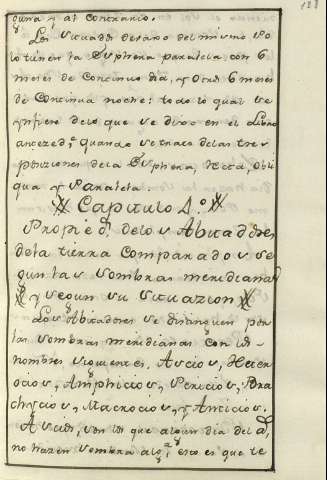 128
guna y al contrario.
Los situados debaxo del mismo Po
lo tienen la Sphera paralela, con 6
meses de Continuo dia, y Otros 6 meses
de Continua noche: todo lo qual se
ynfiere delo que se dixo en el Libro
anteced.e quando se trató delas tres
posiziones dela Sphera, Recta, Obli
qua y Paralela.
Capitulo 4.º
Propied.s delos Abitadores
dela tierra Comparados se
gun las sombras meridianas
y segun su situazion
Los Abitadores se distinguen por
las sombras meridianas con los
nombres siguientes. Ascios, Heter
oscios, Amphiscios, Periscios, Bra
chyscios, Macroscios, y Antiscios.
Ascios, son los que algun dia del año
no hazen sombra alg.a, esto es que te